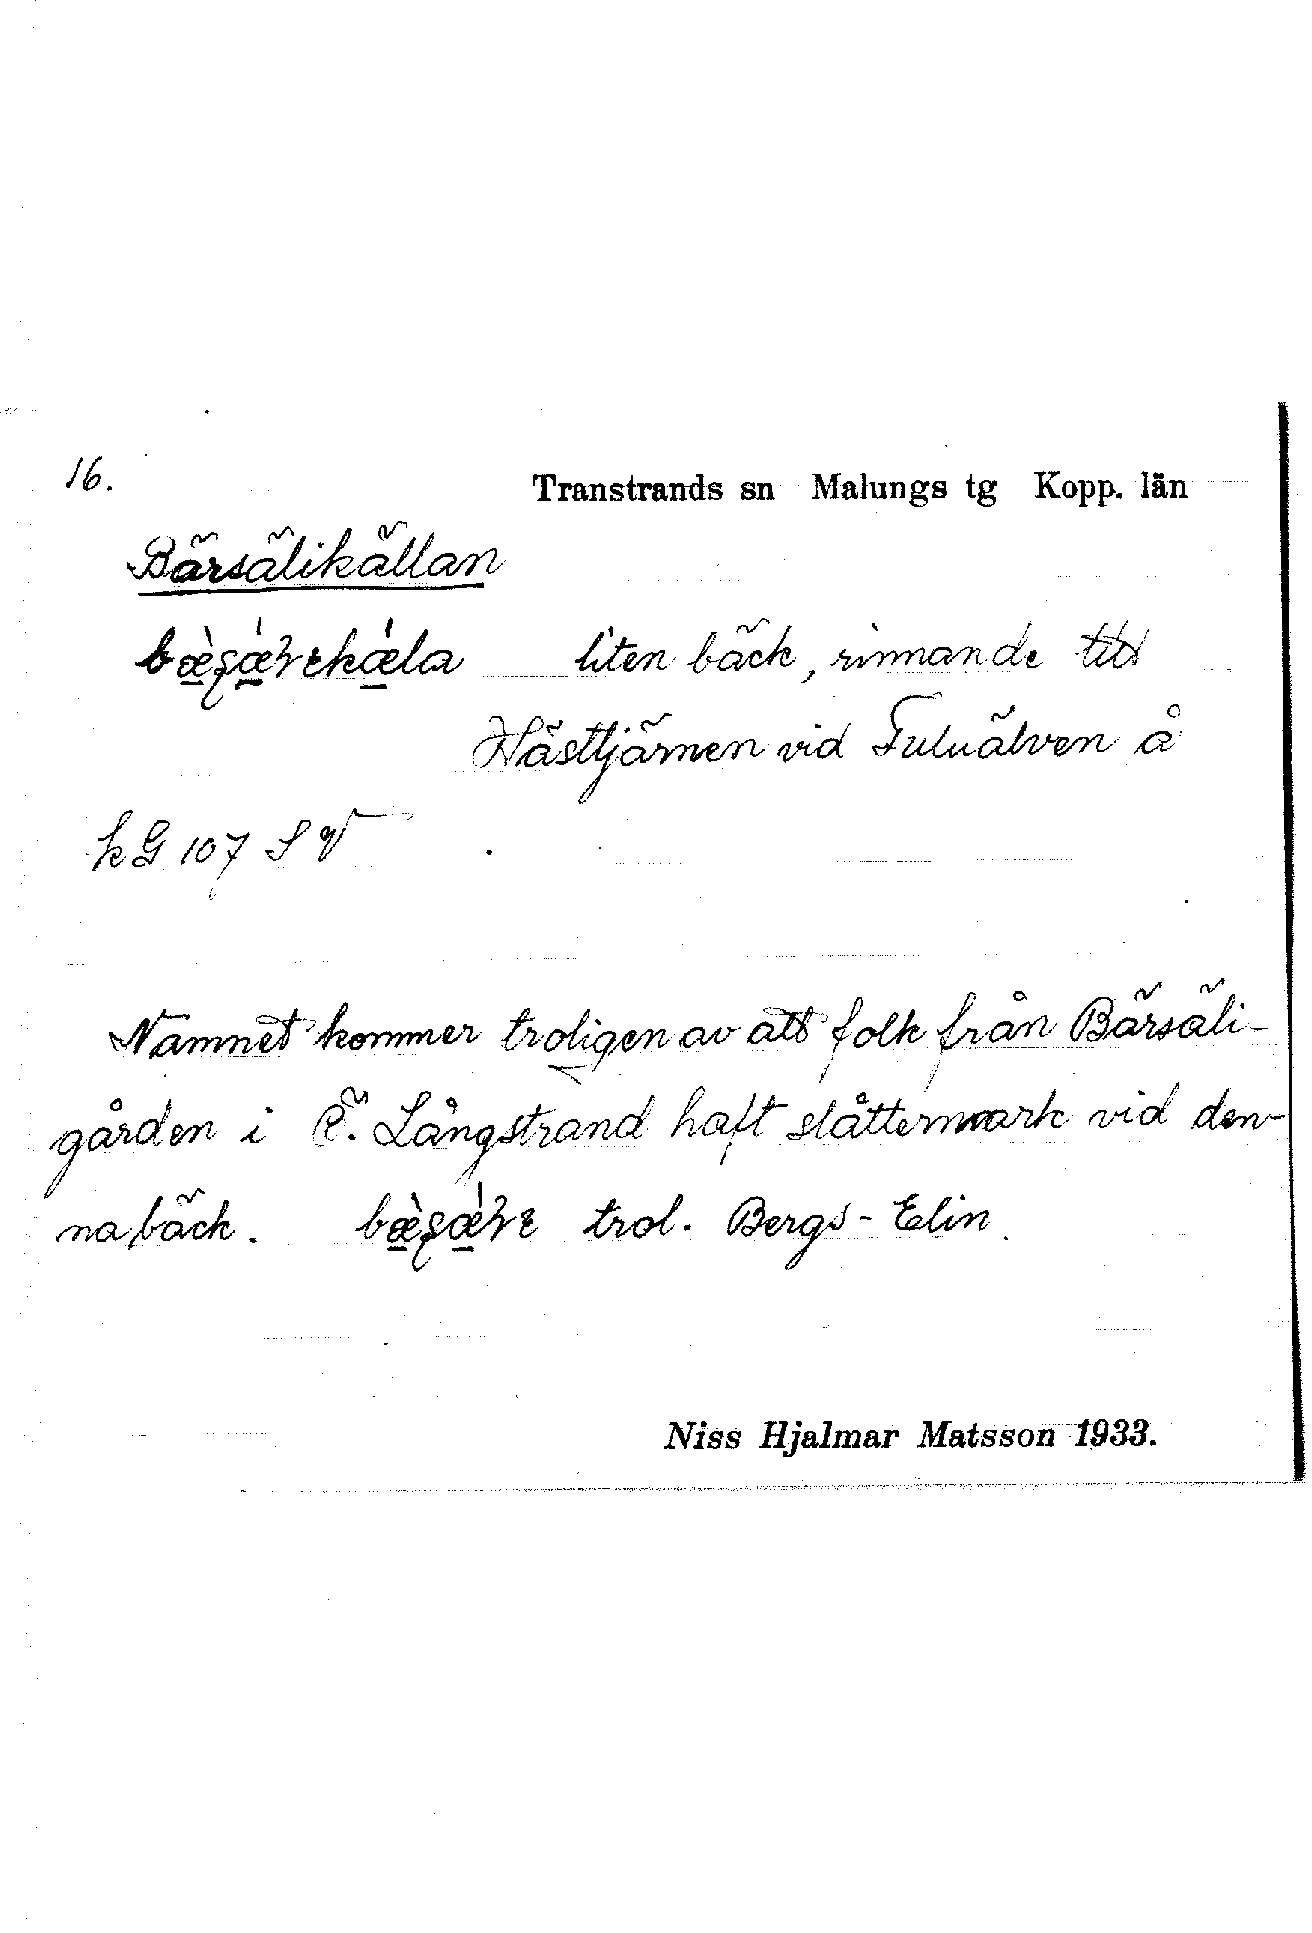 16.
Transtrands sn Malungs tg Kopp. län
Bärsälikällan
liten bäck, rinnande till
Hästtjärnen vid Fuluälven å
kG 107 S V
Namnet kommer troligen av att folk från Bärsäli-
gården i Ö. Långstrand haft slåttermark vid den-
na bäck. trol. Bergs-Elin.
Niss Hjalmar Matsson 1933.